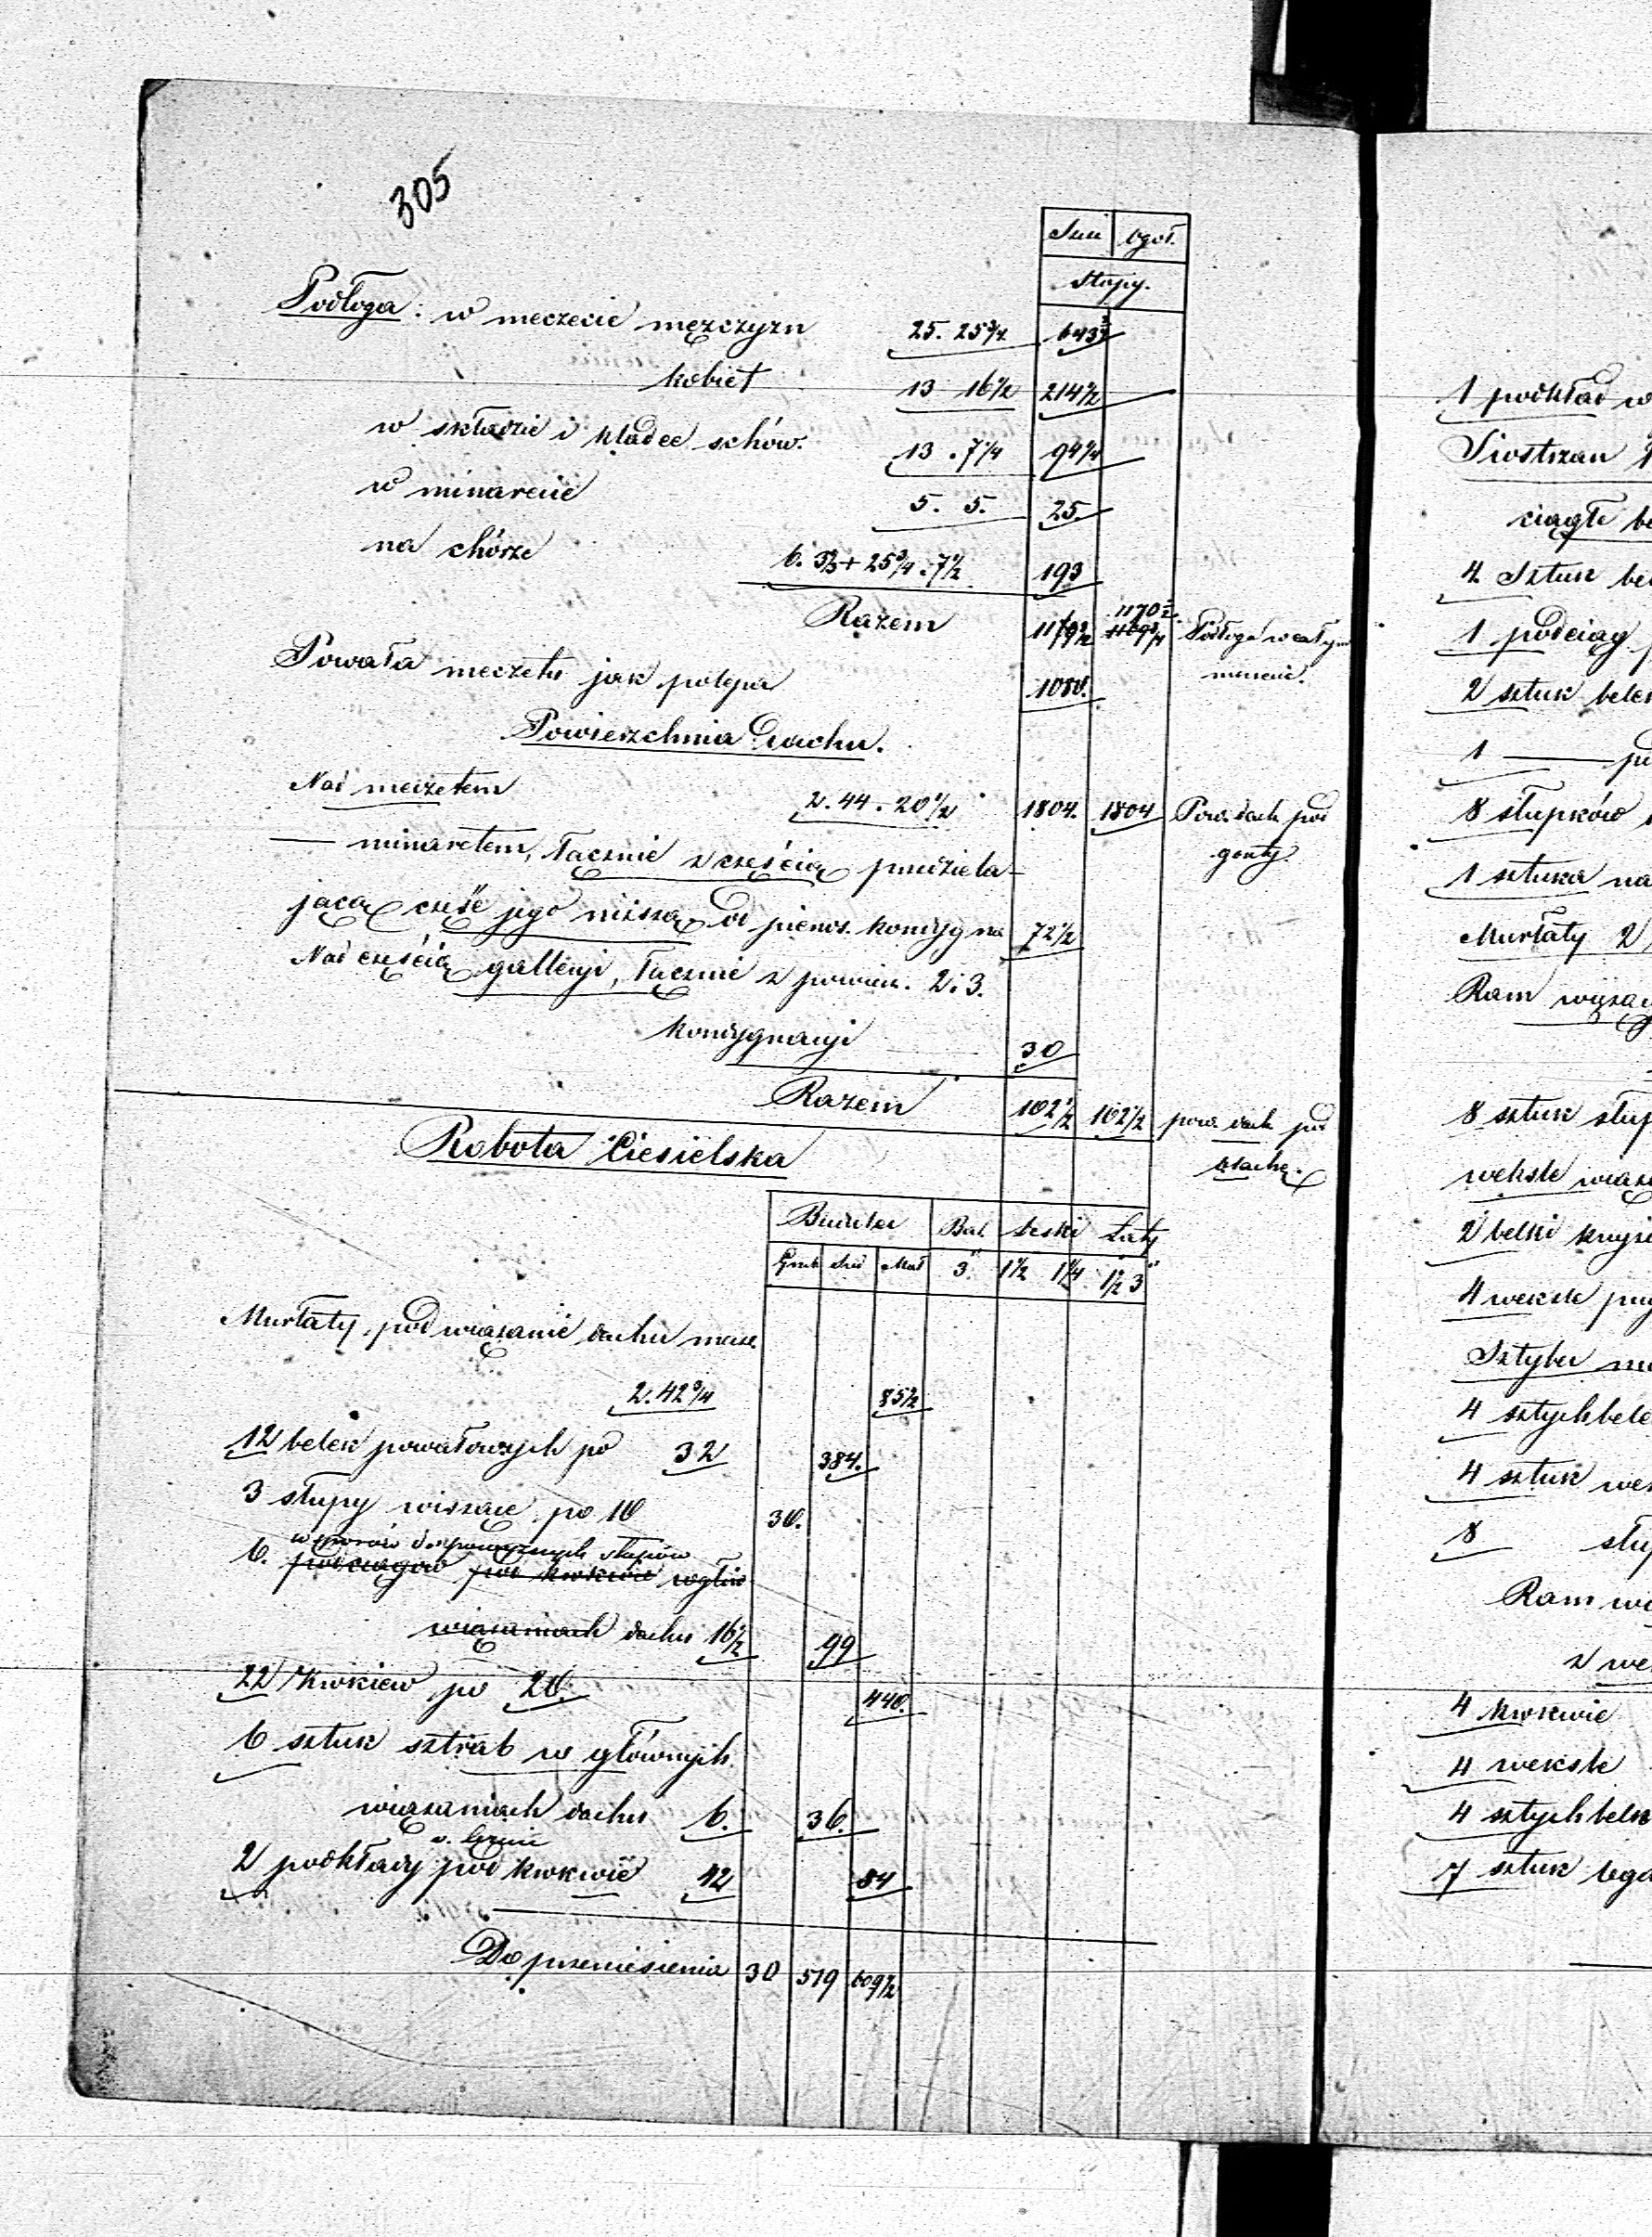 305
Stopy.
Podłoga: w meczecie mężczyzn 25. 25¾ 643¾
kobiet 13 16½ 214½
w składzie i kladce schów. 13. 7¼ 94¼
w minarecie 5. 5. 25.
na chórze 193
Razem 1170½
Podłoga w całym
Powała meczetu jak polepa 1080.
Powierzchnia dachu.
Nad meczetem 2. 44. 20½ 1804. 1804 Pow. dach pod
gonty
— minaretem, łącznie z częścią przedziela-
jącą część jego niższą od pierws. kondygna 72½
Nad częścią galleryi, łącznie z powierz. 2. 3.
kondygnacyi 30
Razem 102½ 102½ pow. dach pod
blachę.
Robota Ciesielska
Bal. Deski Łaty
3" 1½ 1¼ 1½ 3"
Murłaty pod wiązanie dachu mecze.
2. 42¾ 85½
12 belek powałowych po 32 384.
3 słupy wiszące po 10 30.
6. podciągów pod krokwie
wiązaniach dachu 16½ 99
22 Krokiew po 20. 440.
6 sztuk sztrab w głównych
wiązaniach dachu 6. 36.
2 podkłady pod krokwie 42 84
Do przeniesienia 30 519 609½
1 podkład w
Siostrzan
ciągłe be
4 Sztuk bel
1 podciąg p
2 sztuk belek
1 — po
8 słupków
1 sztuka na
Murłaty 2
Ram wiąza
8 sztuk słup
weksle wiąza
2 belki
4 weksle
Sztyber
4 sztychbele
4 sztuk wek
8 słup
Ram wi
z we
4 krokwie
4 weksle
4 sztychbelk
7 sztuk lega